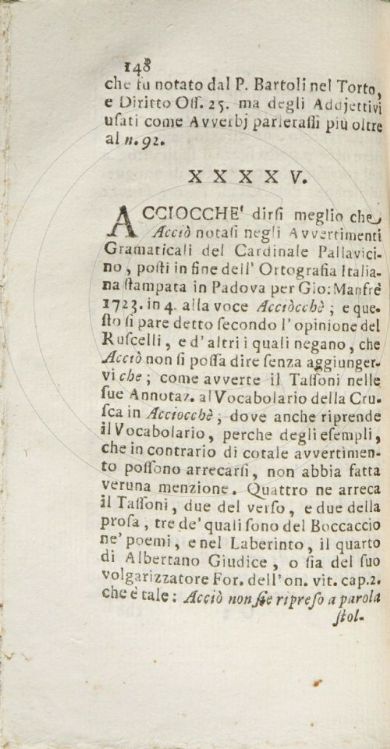 148
che fu notato dal P. Bartoli nel Torto,
e Diritto Oſſ. 25. ma degli Addjettivi
uſati come Avverbj parleraſſi più oltre
al n. 92.
X X X X V.
ACCIOCCHE' dirſi meglio che
Acciò notaſi negli Avvertimenti
Gramaticali del Cardinale Pallavici-
no, poſti in fine dell' Ortografia Italia-
na ſtampata in Padova per Gio: Manfrè
1723. in 4. alla voce Acciòcchè; e que-
ſto ſi pare detto ſecondo l' opinione del
Ruſcelli, e d' altri i quali negano, che
Acciò non ſi poſſa dire ſenza aggiunger-
vi che; come avverte il Taſſoni nelle
ſue Annotaz. al Vocabolario della Cru-
ſca in Acciocchè; dove anche riprende
il Vocabolario, perche degli eſempli,
che in contrario di cotale avvertimen-
to poſſono arrecarſi, non abbia fatta
veruna menzione. Quattro ne arreca
il Taſſoni, due del verſo, e due della
proſa, tre de' quali ſono del Boccaccio
ne' poemi, e nel Laberinto, il quarto
di Albertano Giudice, o ſia del ſuo
volgarizzatore For. dell' on. vit. cap. 2.
che è tale: Acciò non ſie ripreſo a parola
ſtol-